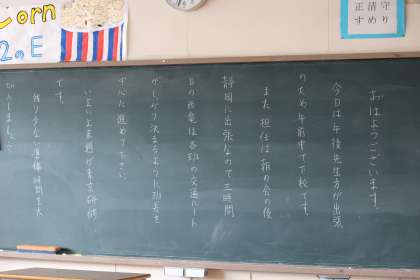 corn
2のE
守り
清め
正す
おはようございます。
今日は午後先生方が出張
のため午前中で下校です。
また担任は朝の会の後
静岡に出張なので三時間
目の西電は各班の交通ルート
がしっかり決まるように班長を
中心に進めて下さい。
いよいよ来週が東京研修
です。
残り少ない準備時間を大
切にしましょう